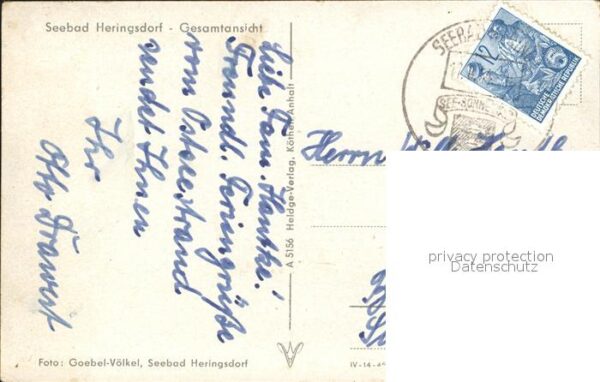 Seebad Heringsdorf - Gesamtansicht
Liebe Fam. Hantke!
Freundl. Feriengrüße
vom Ostseestrand
sendet Ihnen
Ihr
Otto Drawert
Foto: Goebel-Völkel, Seebad Heringsdorf
A 5156 Heldge-Verlag, Köthen-Anhalt
IV-14-4
SEEBAD
SEE-SONNE
12
DEUTSCHE
DEMOKRATISCHE REPUBLIK
Herrn
privacy protection
Datenschutz